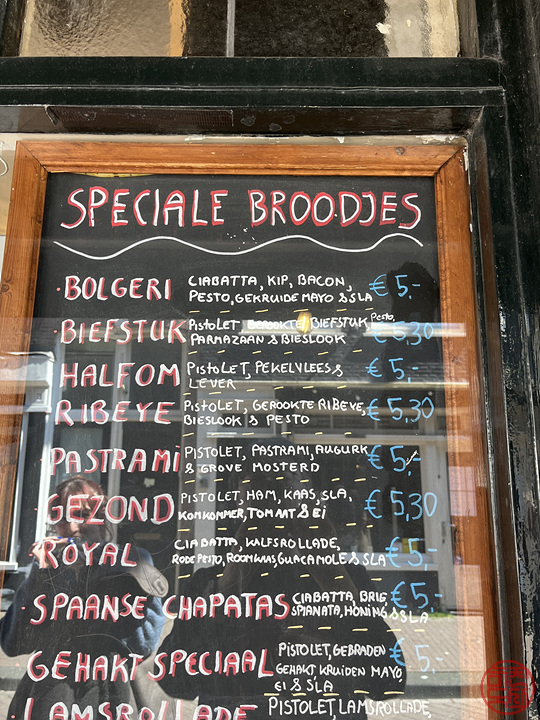 SPECIALE BROODJES
·BOLGERI CIABATTA, KIP, BACON, € 5,-
PESTO, GEKRUIDE MAYO & SLA
·BIEFSTUK PISTOLET, GEROOKTE BIEFSTUK, Pesto, € 6,30
PARMAZAAN & BIESLOOK
HALFOM PISTOLET, PEKELVLEES & € 5,-
LEVER
RIBEYE PISTOLET, GEROOKTE RIBEYE, € 5,30
BIESLOOK & PESTO
PASTRAMI PISTOLET, PASTRAMI, AUGURK € 5,-
& GROVE MOSTERD
GEZOND PISTOLET, HAM, KAAS, SLA, € 5,30
KOMKOMMER, TOMAAT & EI
ROYAL CIABATTA, KALFSROLLADE, € 5,-
RODE PESTO, ROOMKAAS, GUACAMOLE & SLA
SPAANSE CHAPATAS CIABATTA, BRIE € 5,-
SPIANATA, HONING & SLA
GEHAKT SPECIAAL PISTOLET, GEBRADEN € 5,-
GEHAKT KRUIDEN MAYO
EI & SLA
LAMSROLLADE PISTOLET, LAMSROLLADE,